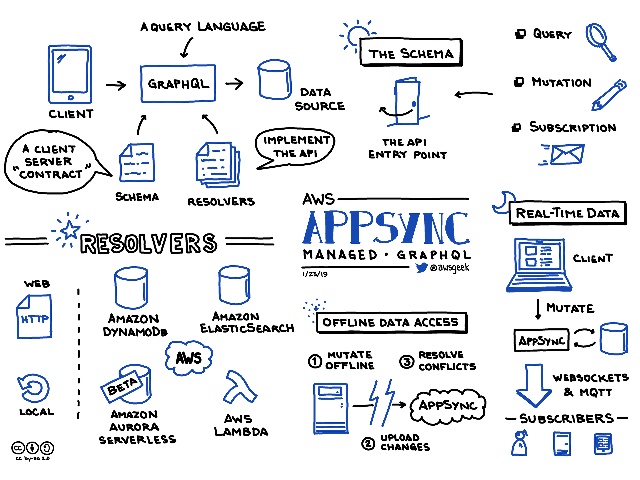 A QUERY LANGUAGE
CLIENT
GRAPHQL
DATA
SOURCE
A CLIENT
SERVER
"CONTRACT"
SCHEMA
RESOLVERS
IMPLEMENT
THE API
THE SCHEMA
THE API
ENTRY POINT
QUERY
MUTATION
SUBSCRIPTION
AWS
APPSYNC
MANAGED · GRAPHQL
1/23/19
@awsgeek
RESOLVERS
WEB
HTTP
LOCAL
AMAZON
DYNAMODB
AMAZON
ELASTICSEARCH
AWS
BETA
AMAZON
AURORA
SERVERLESS
AWS
LAMBDA
CC BY-SA 2.0
OFFLINE DATA ACCESS
1 MUTATE
OFFLINE
3 RESOLVE
CONFLICTS
APPSYNC
2 UPLOAD
CHANGES
REAL-TIME DATA
CLIENT
MUTATE
APPSYNC
WEBSOCKETS
& MQTT
SUBSCRIBERS